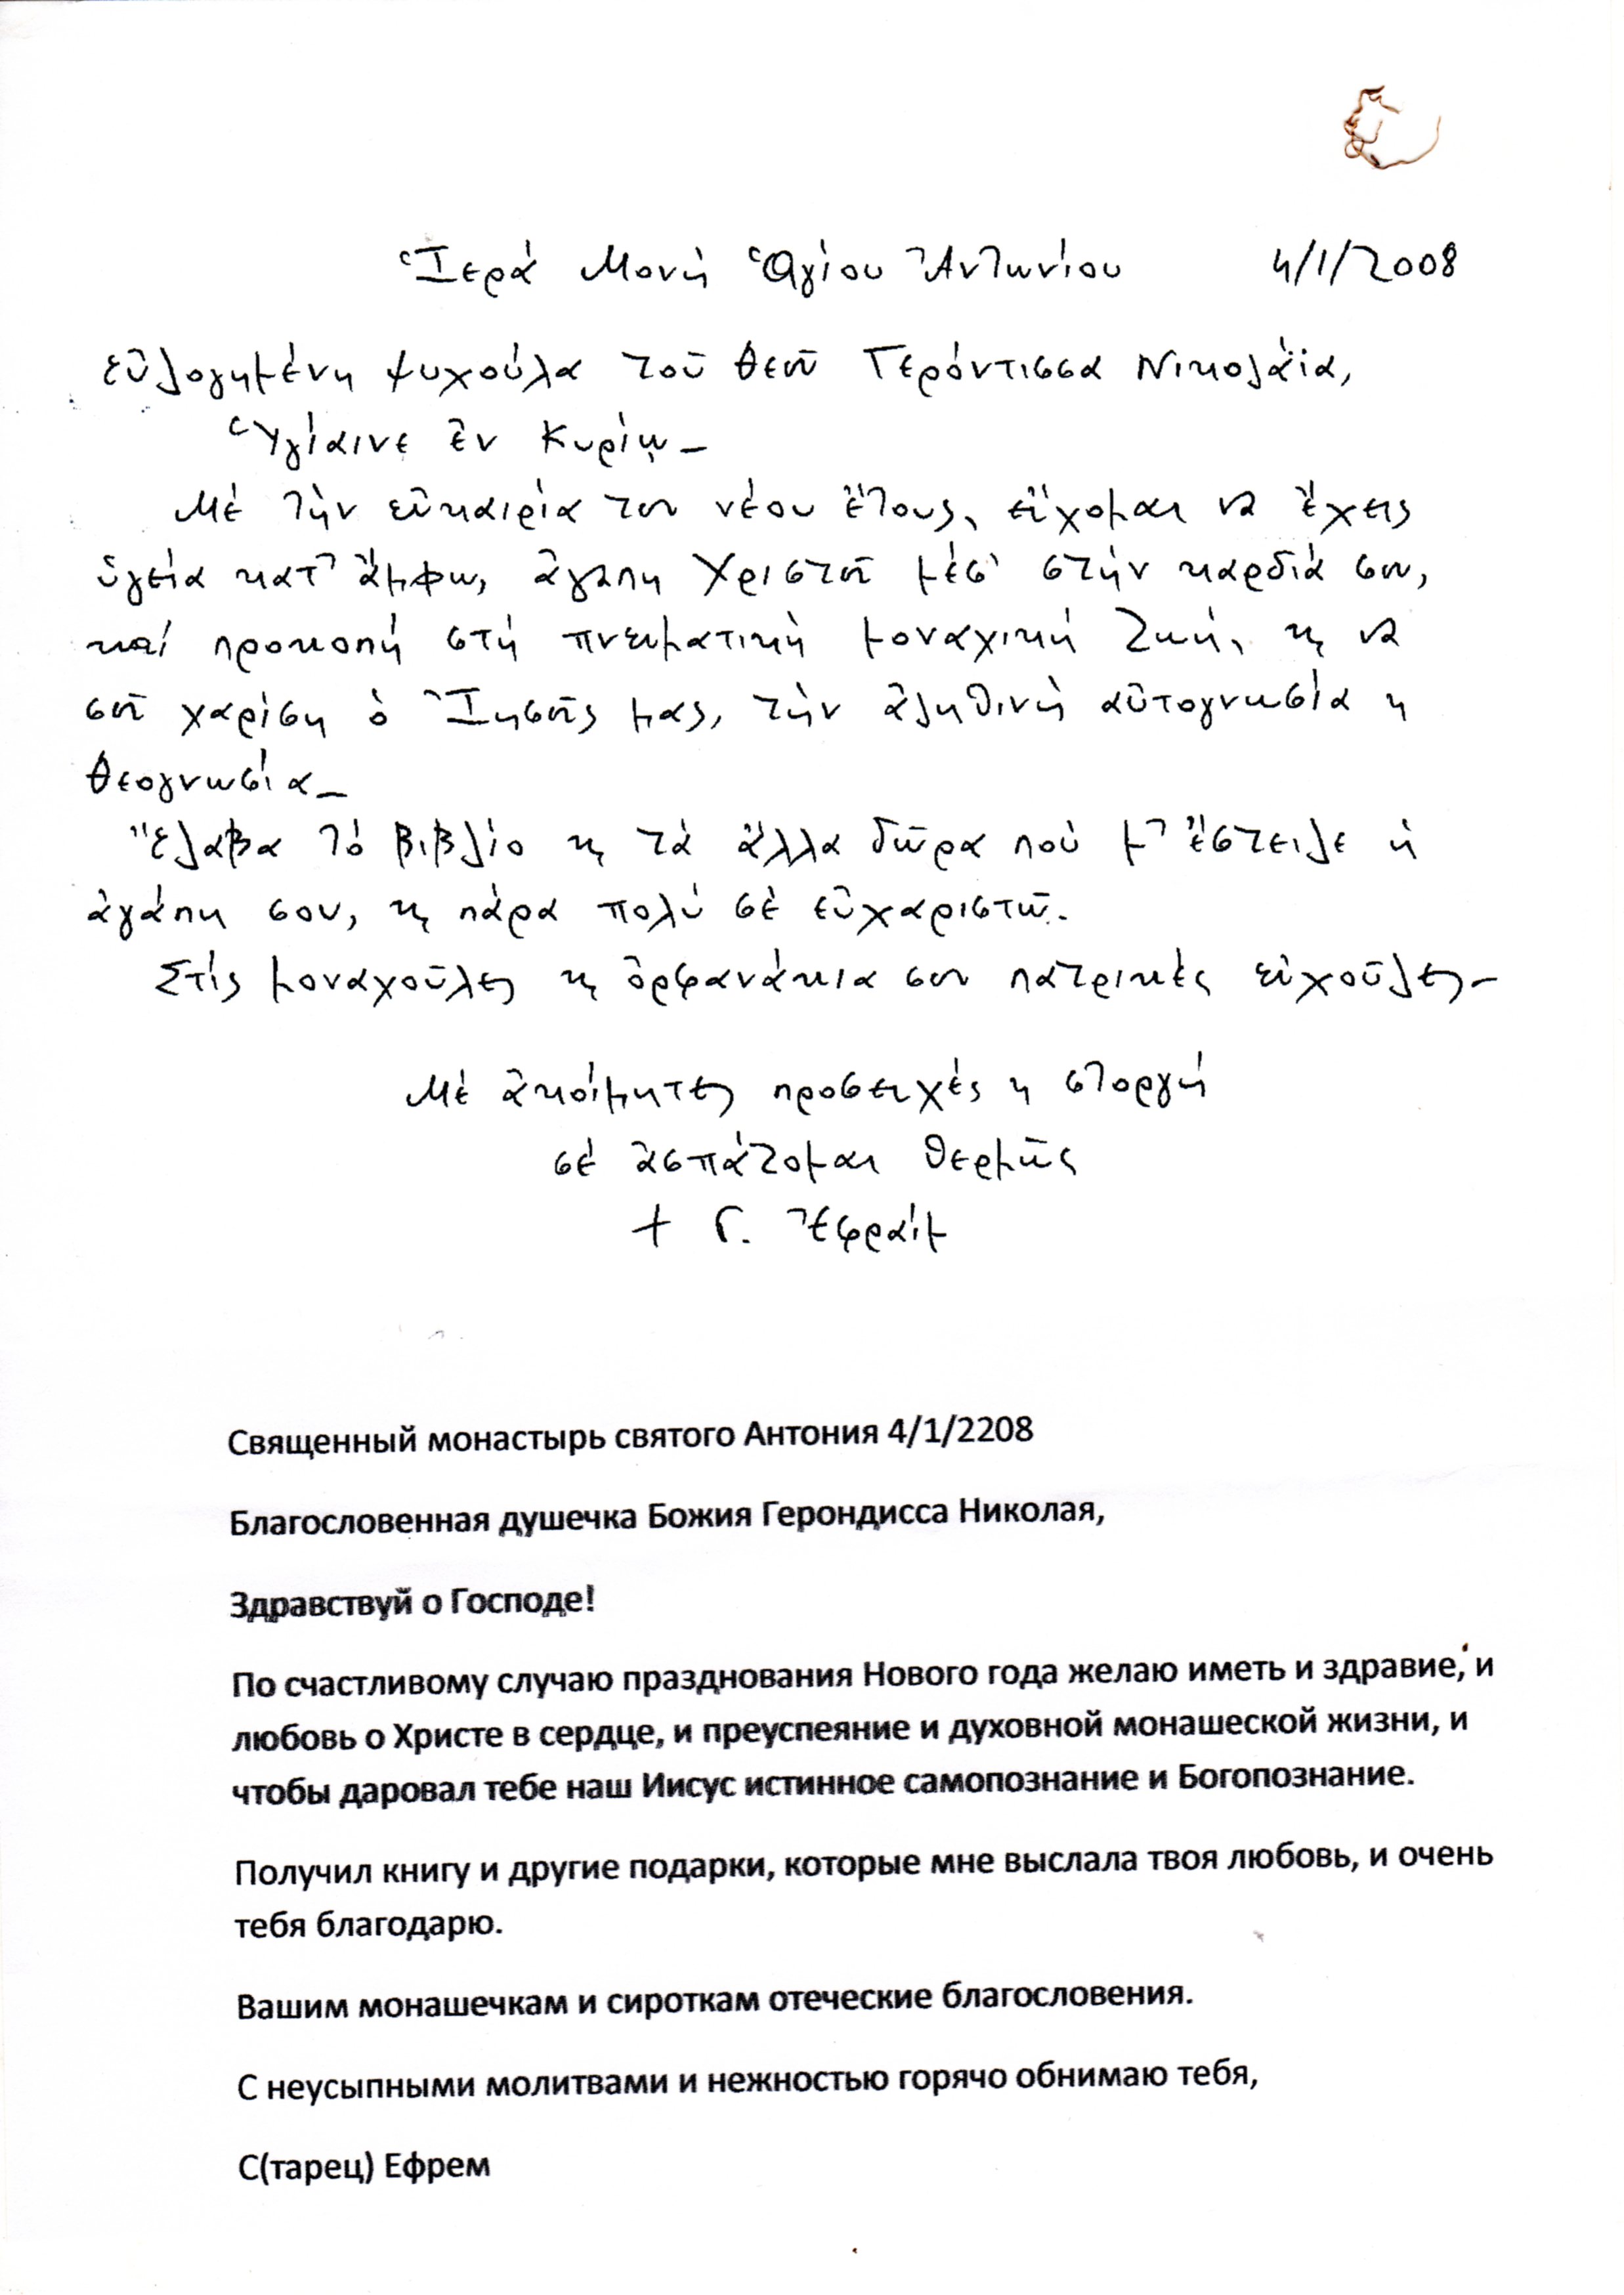 Ἱερά Μονή Ἁγίου Ἀντωνίου 4/1/2008
εὐλογημένη ψυχούλα τοῦ Θεοῦ Γερόντισσα Νικολαΐα,
Ὑγίαινε ἐν Κυρίῳ –
Μέ τήν εὐκαιρία του νέου ἔτους, εὔχομαι νά ἔχεις
ὑγεία κατ' ἄμφω, ἀγάπη Χριστοῦ μέσ' στήν καρδιά σου,
καί προκοπή στή πνευματική μοναχική ζωή, κ νά
σοῦ χαρίση ὁ Ἰησοῦς μας, τήν ἀληθινή αὐτογνωσία κ
θεογνωσία –
Ἔλαβα τό βιβλίο κ τά ἄλλα δῶρα πού μ' ἔστειλε ἡ
ἀγάπη σου, κ πάρα πολύ σέ εὐχαριστῶ.
Στίς μοναχοῦλες κ ὀρφανάκια σου πατρικές εὐχοῦλες –
Μέ ἀκοίμητες προσευχές κ στοργή
σέ ἀσπάζομαι θερμῶς
+ Γ. Ἐφραίμ
Священный монастырь святого Антония 4/1/2208
Благословенная душечка Божия Герондисса Николая,
Здравствуй о Господе!
По счастливому случаю празднования Нового года желаю иметь и здравие, и
любовь о Христе в сердце, и преуспеяние и духовной монашеской жизни, и
чтобы даровал тебе наш Иисус истинное самопознание и Богопознание.
Получил книгу и другие подарки, которые мне выслала твоя любовь, и очень
тебя благодарю.
Вашим монашечкам и сироткам отеческие благословения.
С неусыпными молитвами и нежностью горячо обнимаю тебя,
С(тарец) Ефрем